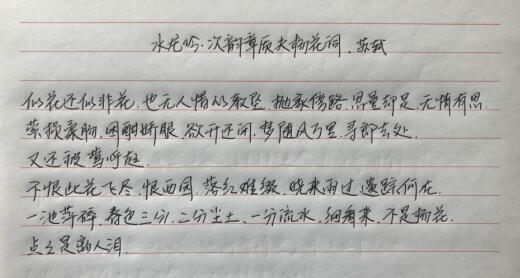 水龙吟·次韵章质夫杨花词 苏轼
似花还似非花.也无人惜从教坠.抛家傍路.思量却是.无情有思.
萦损柔肠.困酣娇眼.欲开还闭.梦随风万里.寻郎去处.
又还被莺呼起.
不恨此花飞尽.恨西园.落红难缀.晓来雨过.遗踪何在.
一池萍碎.春色三分.二分尘土.一分流水.细看来.不是杨花.
点点是离人泪.